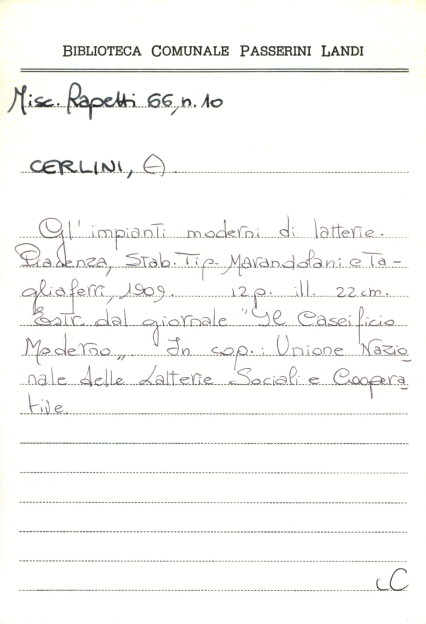 BIBLIOTECA COMUNALE PASSERINI LANDI
Misc. Rapetti 66, n. 10
CERLINI, A.
Gl'impianti moderni di latterie.
Piacenza, Stab. Tip. Marandofani e Ta-
gliaferri, 1909. 12 p. ill. 22 cm.
Estr. dal giornale "Il Caseificio
Moderno„ In cop.: Unione Nazio
nale delle Latterie Sociali e Coopera
tive.